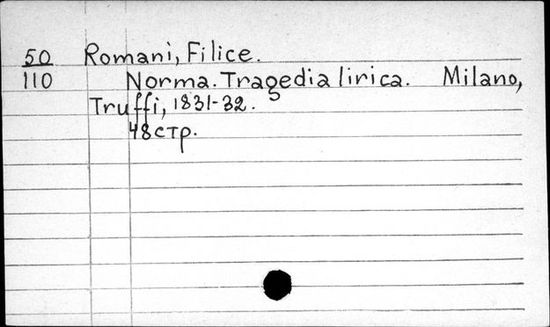 50 Romani, Filice.
110 Norma. Tragedia lirica. Milano,
Truffi, 1831-32.
48 стр.